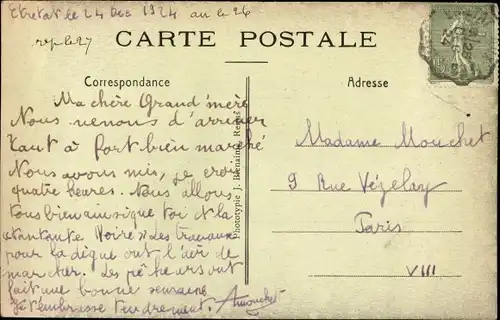 Etretat le 24 Dec 1924 au le 26
rep le 27
CARTE POSTALE
Correspondance
Adresse
Ma chère Grand'mère
Nous venons d'arriver
tout à fort bien marché
Nous avons mis, je crois
quatre heures. Nous allons
tous bien ainsi que toi et la
tante Les travaux
pour la digue ont l'air de
marcher. Les pêcheurs ont
fait une bonne semaine
Je t'embrasse tendrement. AMouchet
Phototypie J. Bienaimé, Reims
Madame Mouchet
9 Rue Vézelay
Paris
VIII